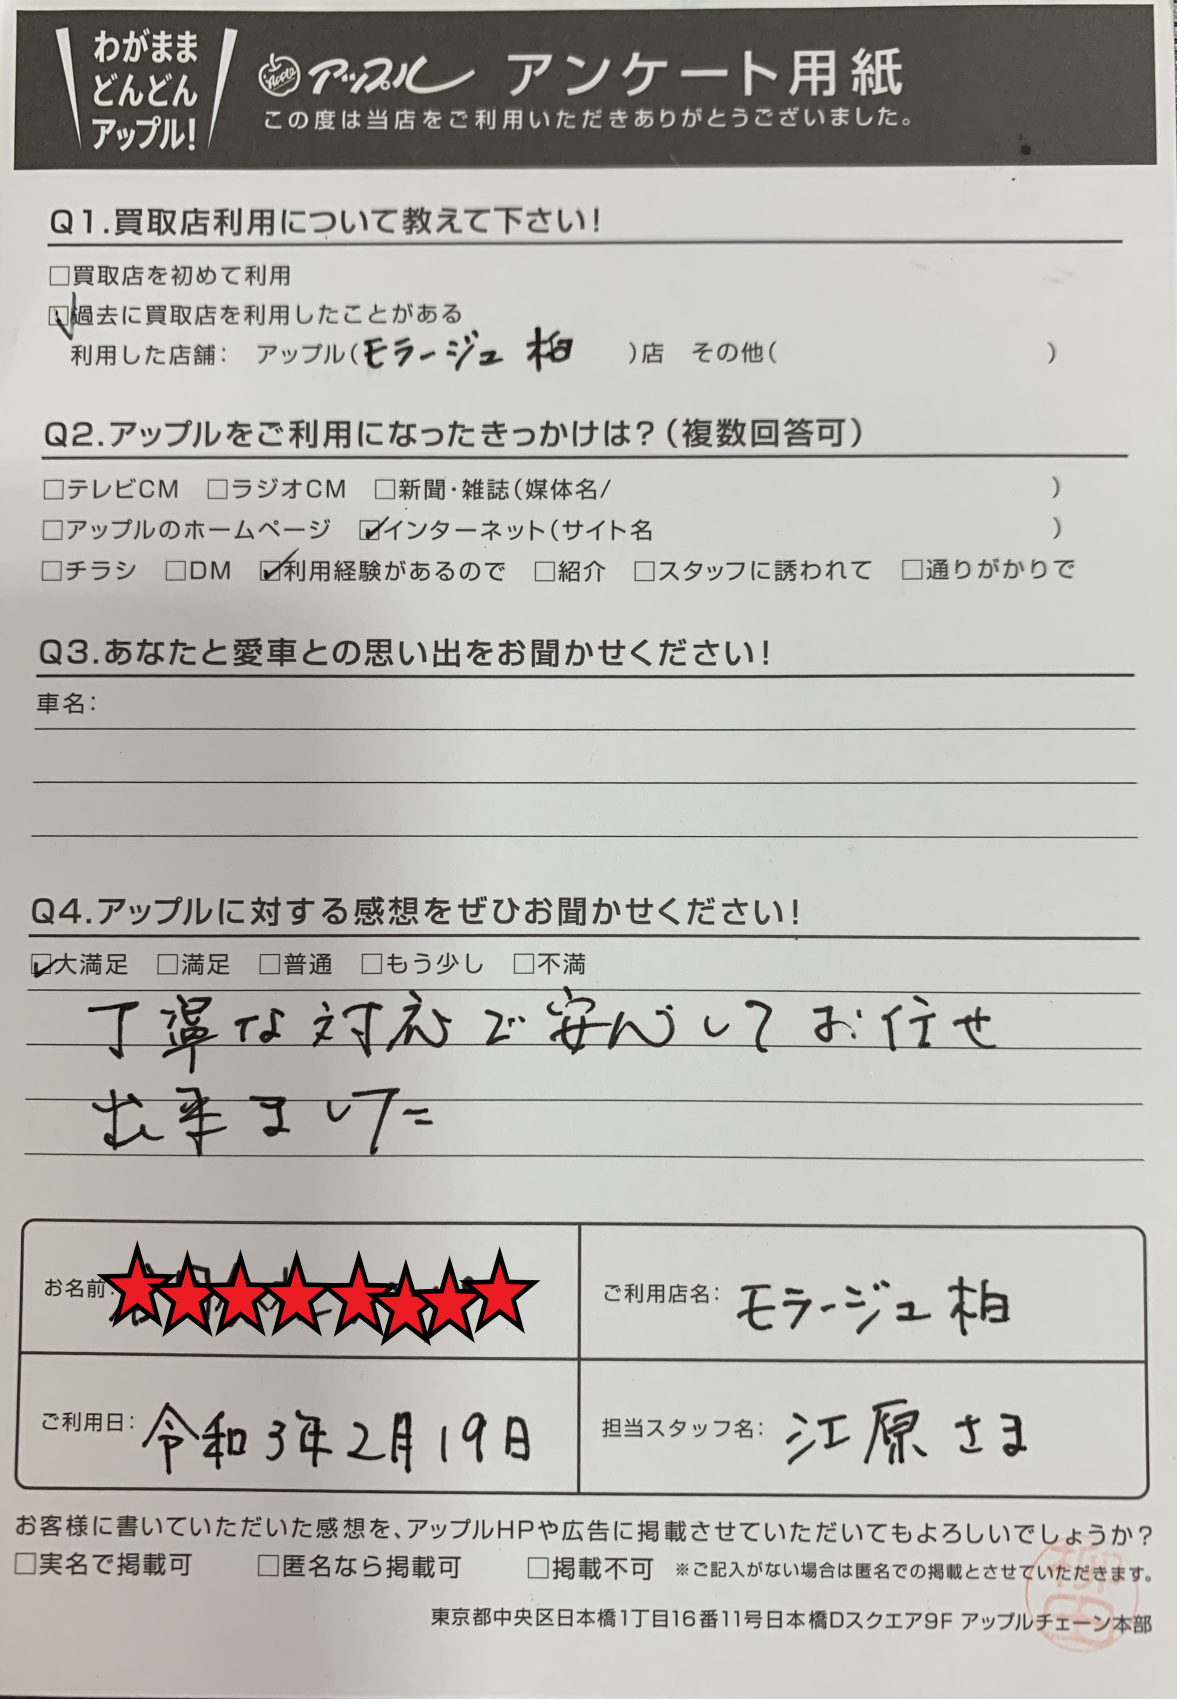 わがまま
どんどん
アップル!
Apple アップル アンケート用紙
この度は当店をご利用いただきありがとうございました。
Q1.買取店利用について教えて下さい!
□買取店を初めて利用
☑過去に買取店を利用したことがある
利用した店舗: アップル(モラージュ 柏 )店 その他( )
Q2.アップルをご利用になったきっかけは?(複数回答可)
□テレビCM □ラジオCM □新聞・雑誌(媒体名/ )
□アップルのホームページ ☑インターネット(サイト名 )
□チラシ □DM ☑利用経験があるので □紹介 □スタッフに誘われて □通りがかりで
Q3.あなたと愛車との思い出をお聞かせください!
車名:
Q4.アップルに対する感想をぜひお聞かせください!
☑大満足 □満足 □普通 □もう少し □不満
丁寧な対応で安心してお任せ
出来ました
お名前:
ご利用店名: モラージュ柏
ご利用日: 令和3年2月19日
担当スタッフ名: 江原さま
お客様に書いていただいた感想を、アップルHPや広告に掲載させていただいてもよろしいでしょうか?
□実名で掲載可 □匿名なら掲載可 □掲載不可 ※ご記入がない場合は匿名での掲載とさせていただきます。
東京都中央区日本橋1丁目16番11号日本橋Dスクエア9F アップルチェーン本部